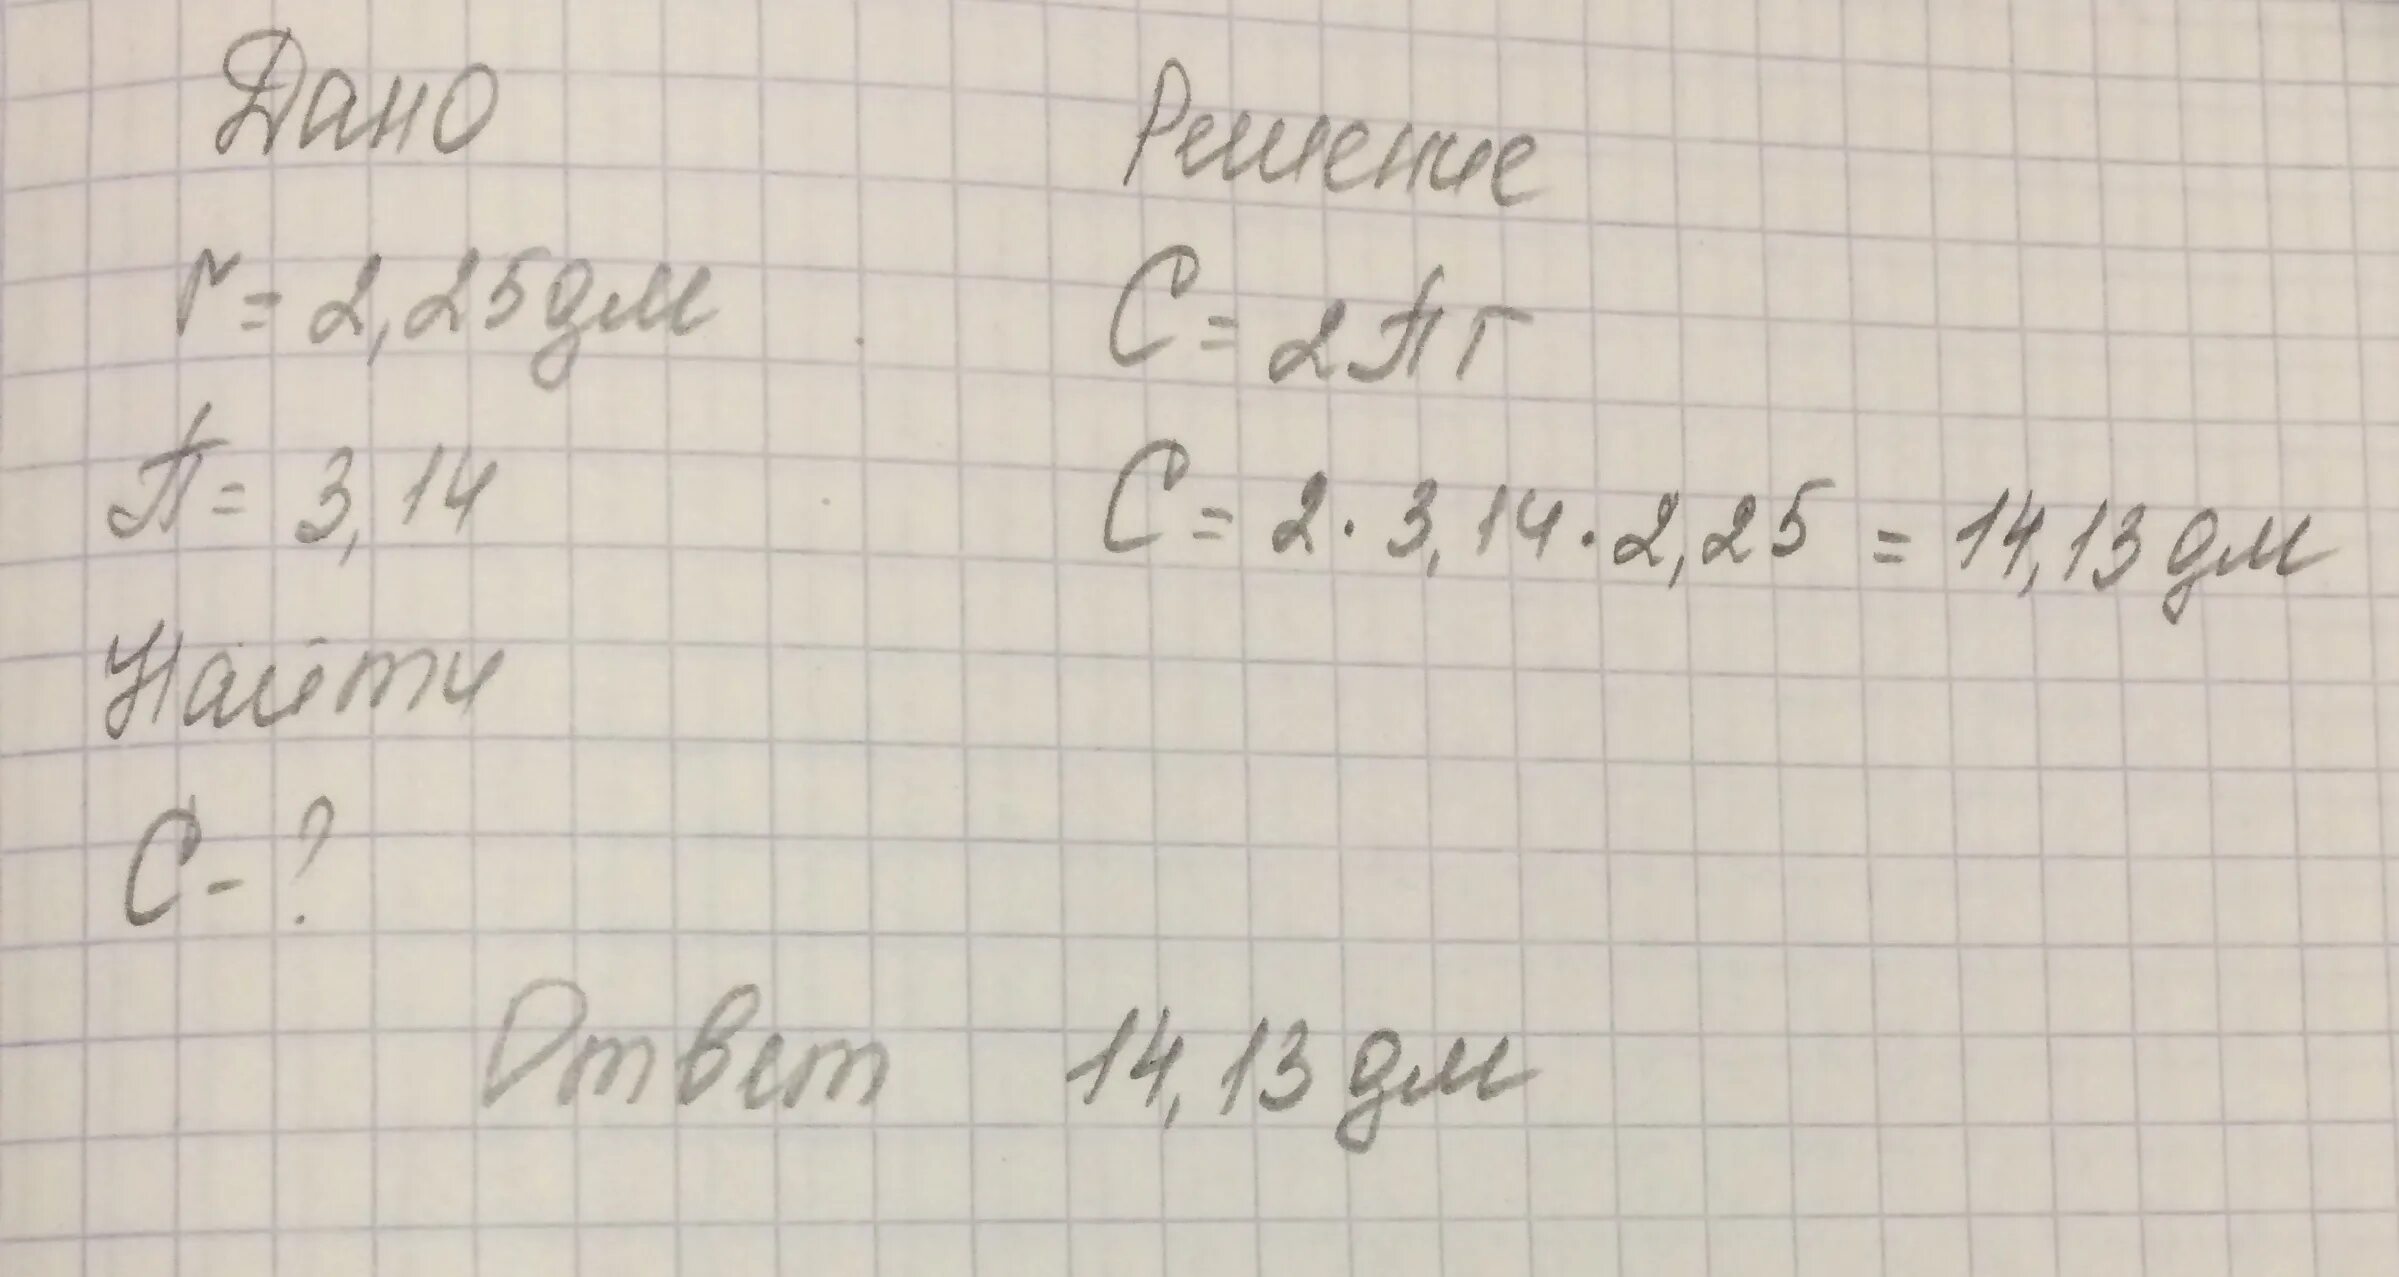 Дано
r = 2,25 дм
П = 3,14
Найти
С - ?
Решение
С = 2Пr
С = 2 · 3,14 · 2,25 = 14,13 дм
Ответ 14,13 дм